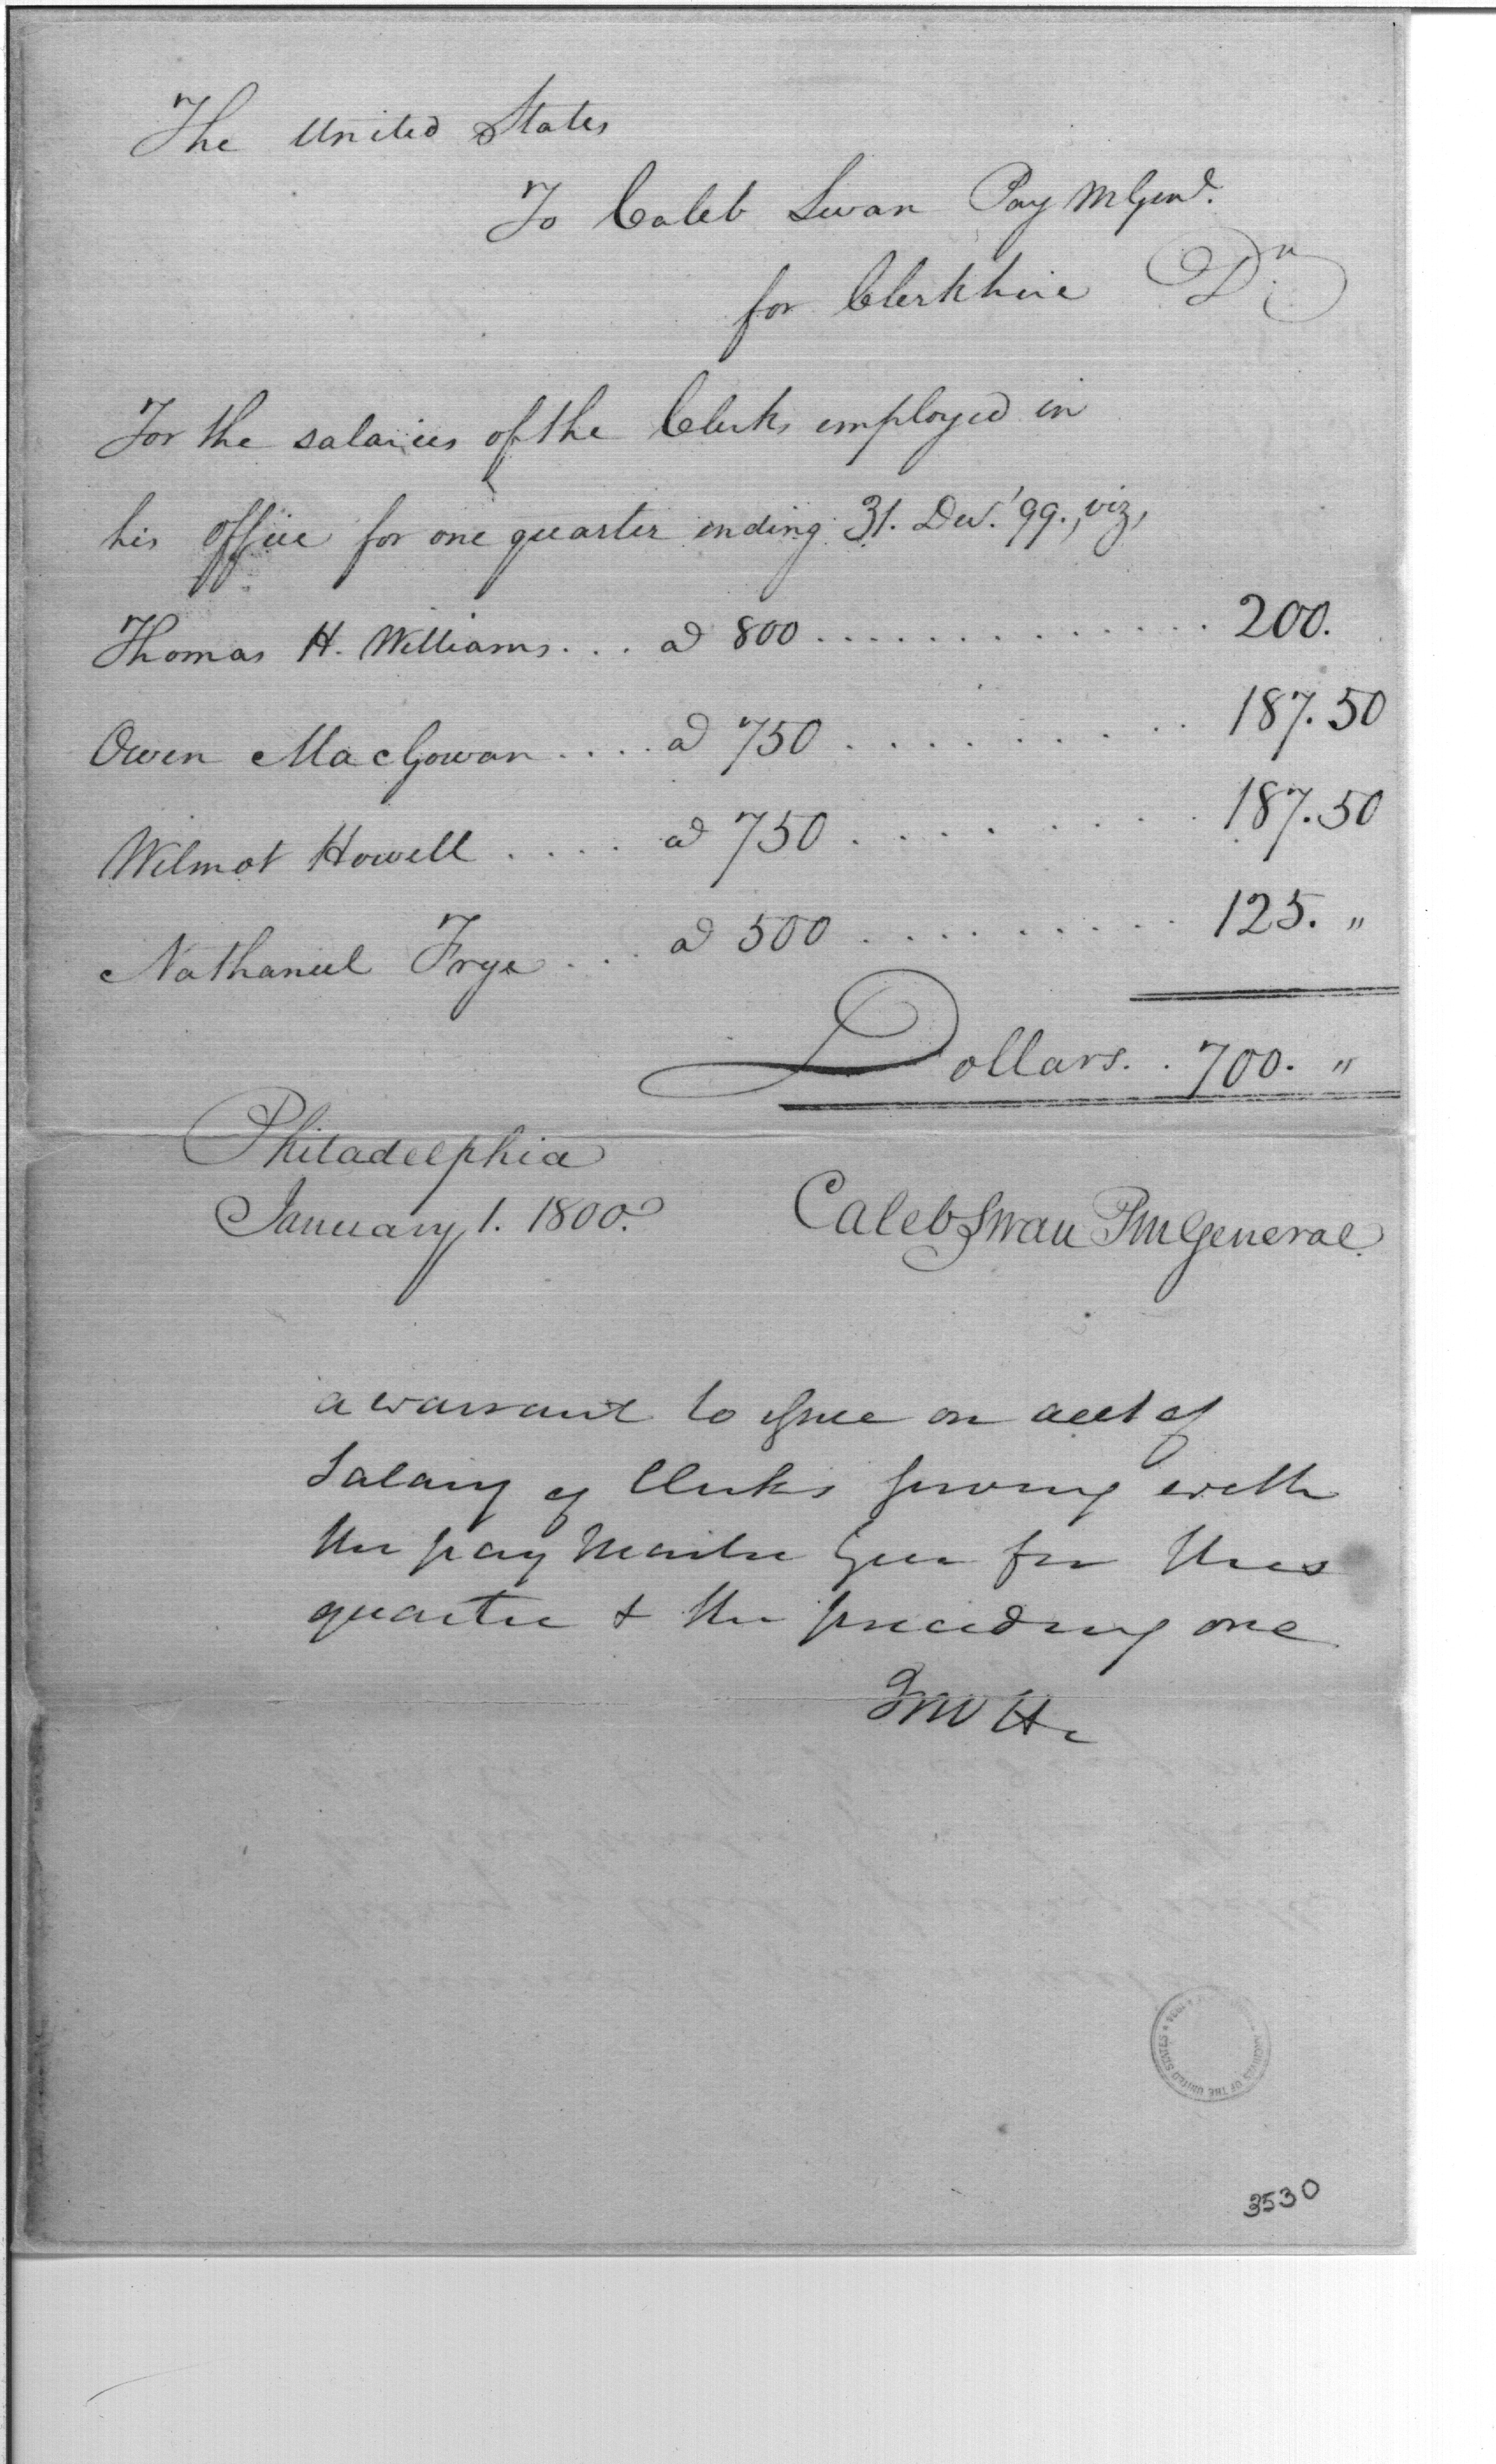 The United States
To Caleb Swan Pay M Genl.
for Clerk hire Dr.
For the salaries of the Clerks employed in
his office for one quarter ending 31. Decr. '99., viz,
Thomas H. Williams . . . a 800 . . . . . . . . . . . . . . 200.
Owen MacGowan . . . . a 750 . . . . . . . . . . 187.50
Wilmot Howell . . . . a 750 . . . . . . . . . . 187.50
Nathaniel Frye . . . a 500 . . . . . . . . . . 125. "
Dollars. . 700. "
Philadelphia
January 1. 1800.
Caleb Swan PM General.
a warrant to issue on acct of
Salary of Clerks serving with
the pay Master Gen for this
quarter & the preceding one
OF THE UNITED STATES
3530